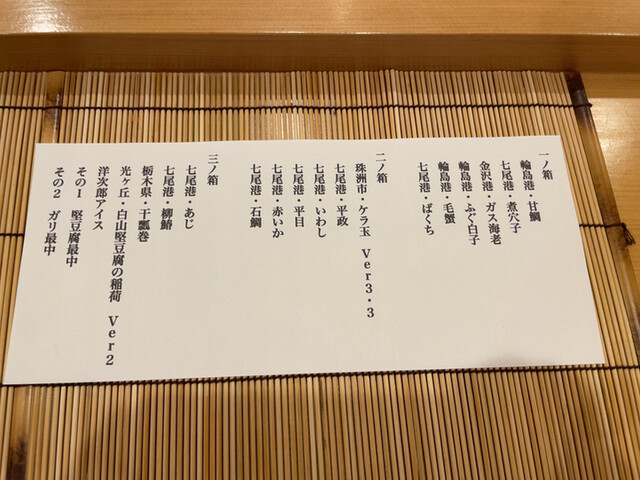 一ノ箱
輪島港・甘鯛
七尾港・煮穴子
金沢港・ガス海老
輪島港・ふぐ白子
輪島港・毛蟹
七尾港・ばくち
二ノ箱
珠洲市・ケラ玉 Ver3・3
七尾港・平政
七尾港・いわし
七尾港・平目
七尾港・赤いか
七尾港・石鯛
三ノ箱
七尾港・あじ
七尾港・柳鰆
栃木県・干瓢巻
光ヶ丘・白山堅豆腐の稲荷 Ver2
洋次郎アイス
その1 堅豆腐最中
その2 ガリ最中